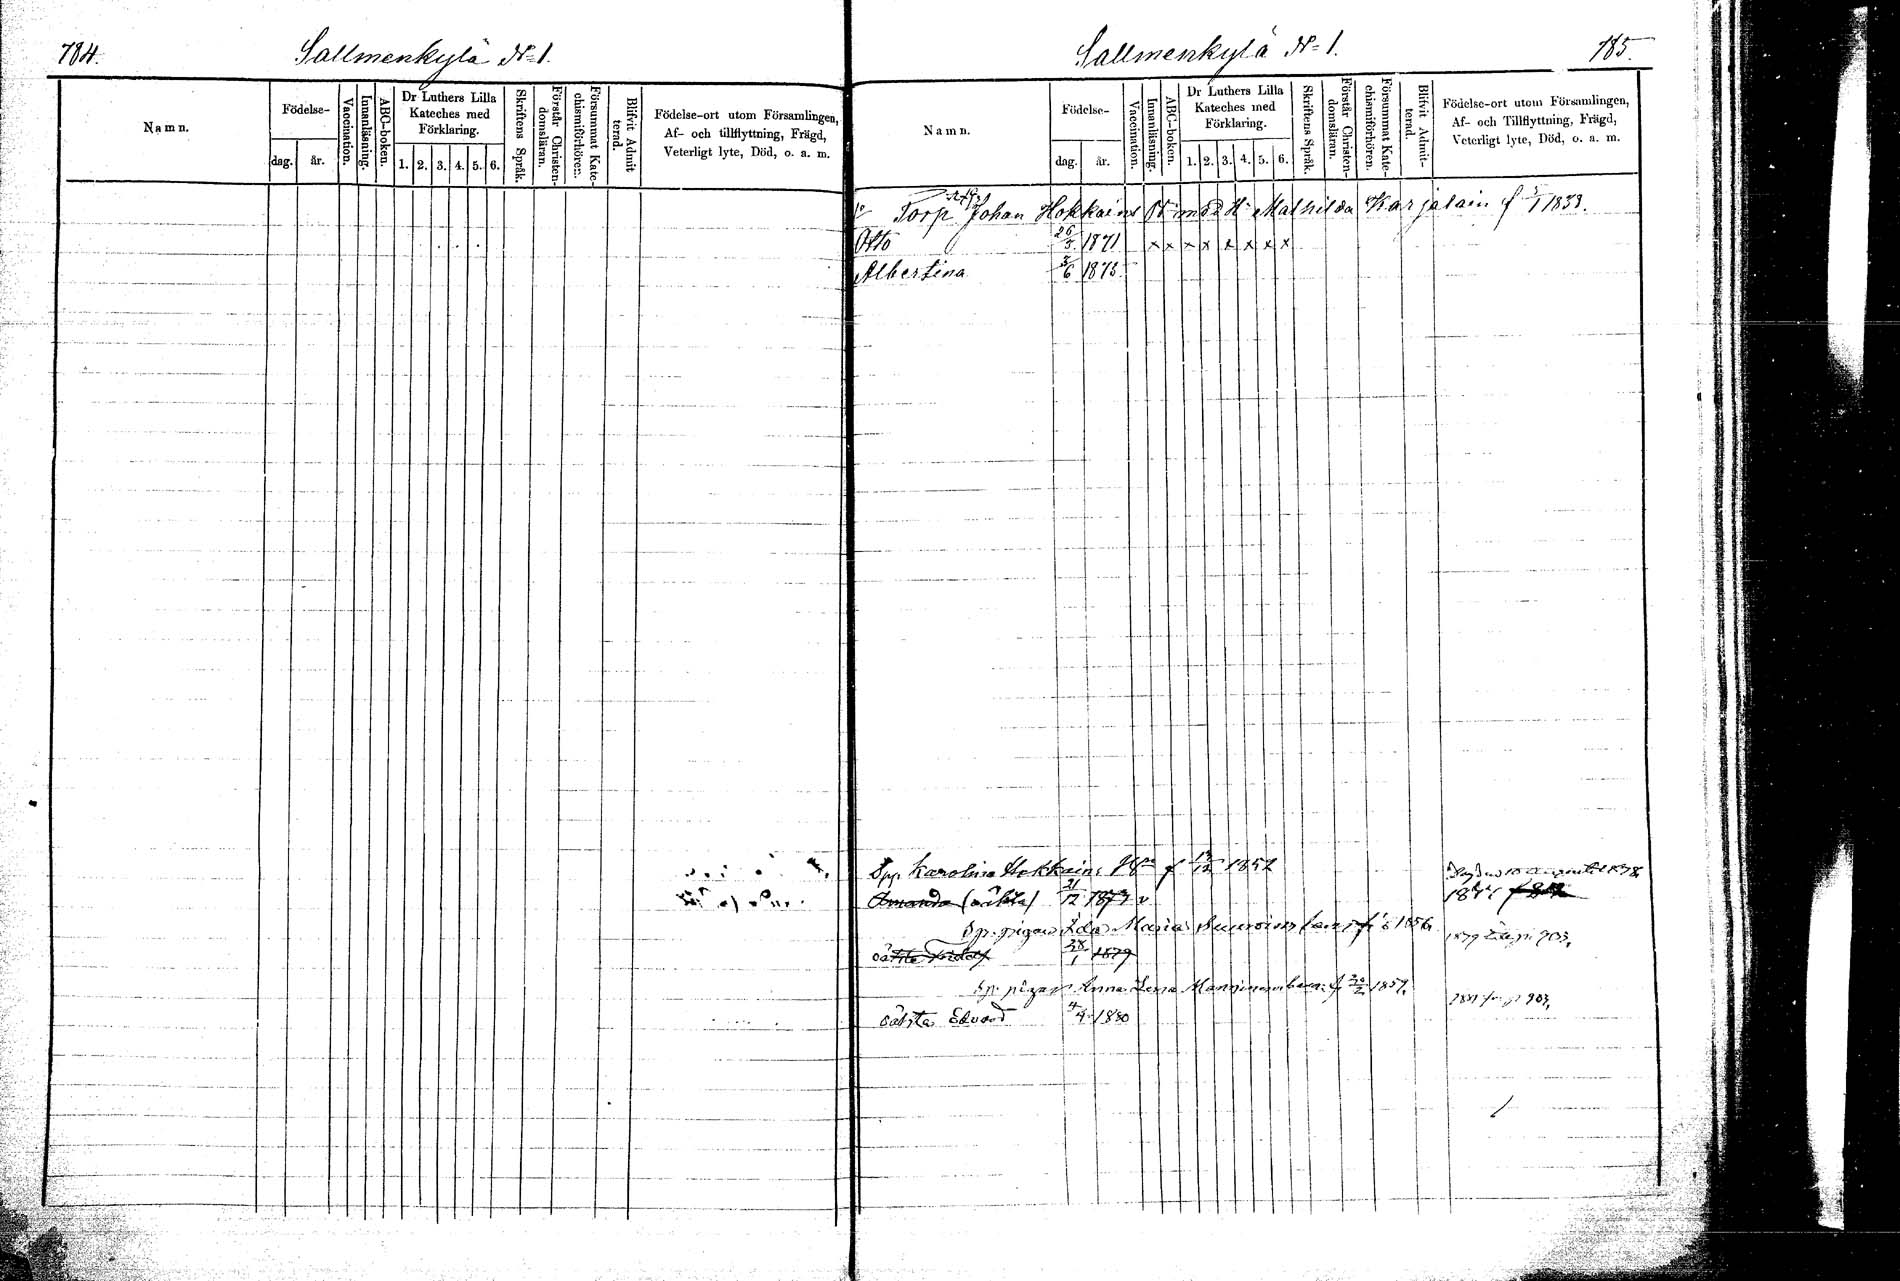 784.
Sallmenkylä N=1.
Namn.
Födelse-
dag.
år.
Vaccination.
Innanläsning.
ABC-boken.
Dr Luthers Lilla
Kateches med
Förklaring.
1. 2. 3. 4. 5. 6.
Skriftens Språk.
Förstår Christen-
domsläran.
Försummat Kate-
chismiförhören.
Blifvit Admit
terad.
Födelse-ort utom Församlingen,
Af- och tillflyttning, Frägd,
Veterligt lyte, Död, o. a. m.
Sallmenkylä N=1.
785.
Namn.
Födelse-
dag.
år.
Vaccination.
Innanläsning.
ABC-boken.
Dr Luthers Lilla
Kateches med
Förklaring.
1. 2. 3. 4. 5. 6.
Skriftens Språk.
Förstår Christen-
domsläran.
Försummat Kate-
chismiförhören.
Blifvit Admit-
terad.
Födelse-ort utom Församlingen,
Af- och Tillflyttning, Frägd,
Veterligt lyte, Död, o. a. m.
Torp Johan Hokkaine med H Mathilda Karjalain f 5/1 1833.
Otto 26/5 1871 x x x x x x x x
Albertina 3/6 1873.
Karolina Hokkain f 1852
Amanda (oäkta) 21/12 1873 v
Ida Maria 1856
oäkta 28/1 1879 1879
pigan Anna Lena f 1857. 903,
oäkta Edvard 4/4 1880